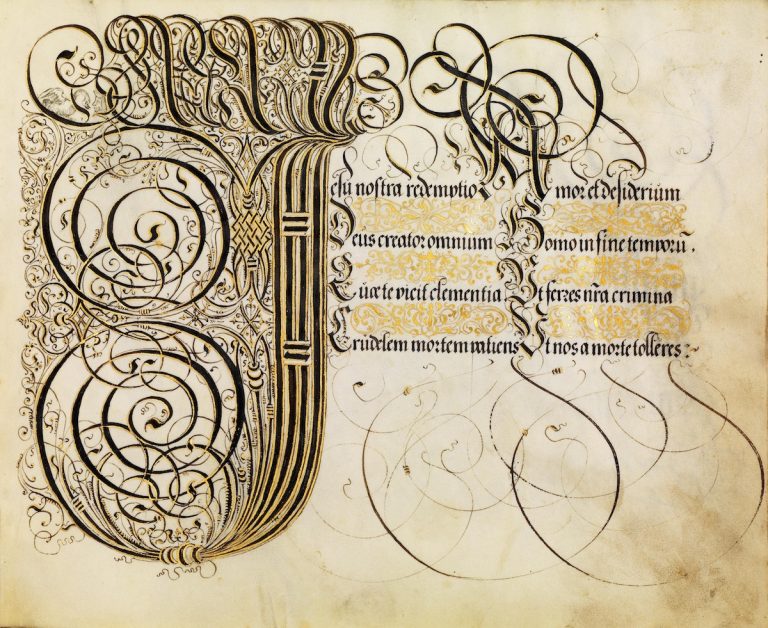 Jesu nostra redemptio Amor et desiderium
Deus creator omnium Homo in fine temporū .
Quæ te vicit clementia Ut ferres nr̄a crimina
Crudelem mortem patiens Ut nos a morte tolleres :